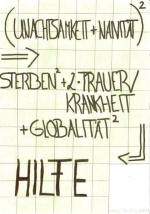 (UNACHTSAMKEIT + NAIVITÄT)²
⇒
STERBEN² + 2·TRAUER/
KRANKHEIT
+ GLOBALITÄT²
HILFE